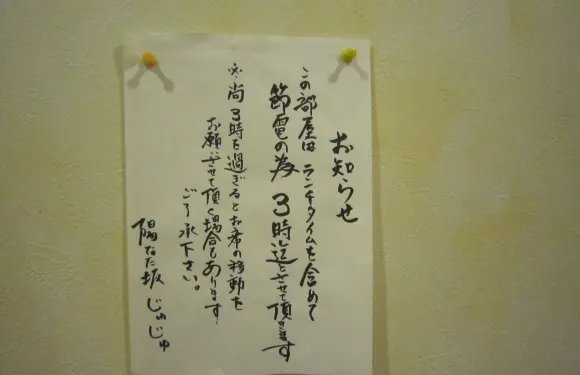 お知らせ
この部屋は ランチタイムを含めて
節電の為 3時迄とさせて頂きます
※尚 3時を過ぎるとお席の移動を
お願いさせて頂く場合もあります
ご了承下さい。
陽なた坂 じゅじゅ